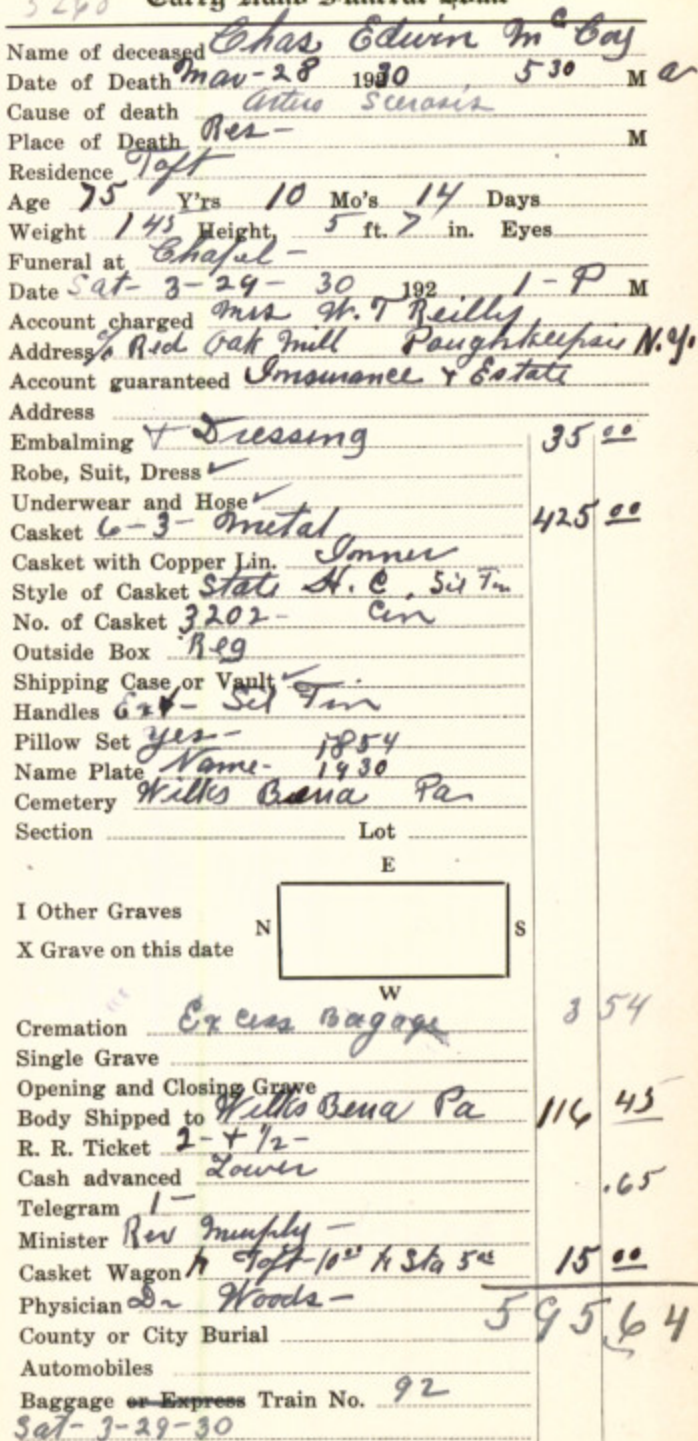 5260 Curry Hand Funeral Home
Name of deceased Chas Edwin McCoy
Date of Death Mar-28 1930 5 30 M a
Cause of death Arterio Scerosis
Place of Death Res - M
Residence Toft
Age 75 Y'rs 10 Mo's 14 Days
Weight 145 Height, 5 ft. 7 in. Eyes
Funeral at Chapel -
Date Sat- 3-29- 30 192 1-P M
Account charged Mrs W.T Reilly
Address % Red Oak Mill Poughkeepsie N.Y.
Account guaranteed Insurance & Estate
Address
Embalming + Dressing 35 00
Robe, Suit, Dress ✓
Underwear and Hose ✓
Casket 6-3- Metal 425 00
Casket with Copper Lin. Inner
Style of Casket State H. C. Sil Tin
No. of Casket 3202- Cin
Outside Box Reg
Shipping Case or Vault ✓
Handles Ex - Sil Tin
Pillow Set yes- 1854
Name Plate Name- 1930
Cemetery Wilks Barra Pa
Section Lot
E
I Other Graves
N S
X Grave on this date
W
Cremation Excess Bagage 3 54
Single Grave
Opening and Closing Grave
Body Shipped to Wilks Bena Pa 116 45
R. R. Ticket 2-+ 1/2-
Cash advanced Lower .65
Telegram 1-
Minister Rev Murphy -
Casket Wagon to Toft-10 00 to Sta 5 00 15 00
Physician Dr Woods - 595 64
County or City Burial
Automobiles
Baggage or Express Train No. 92
Sat- 3-29-30